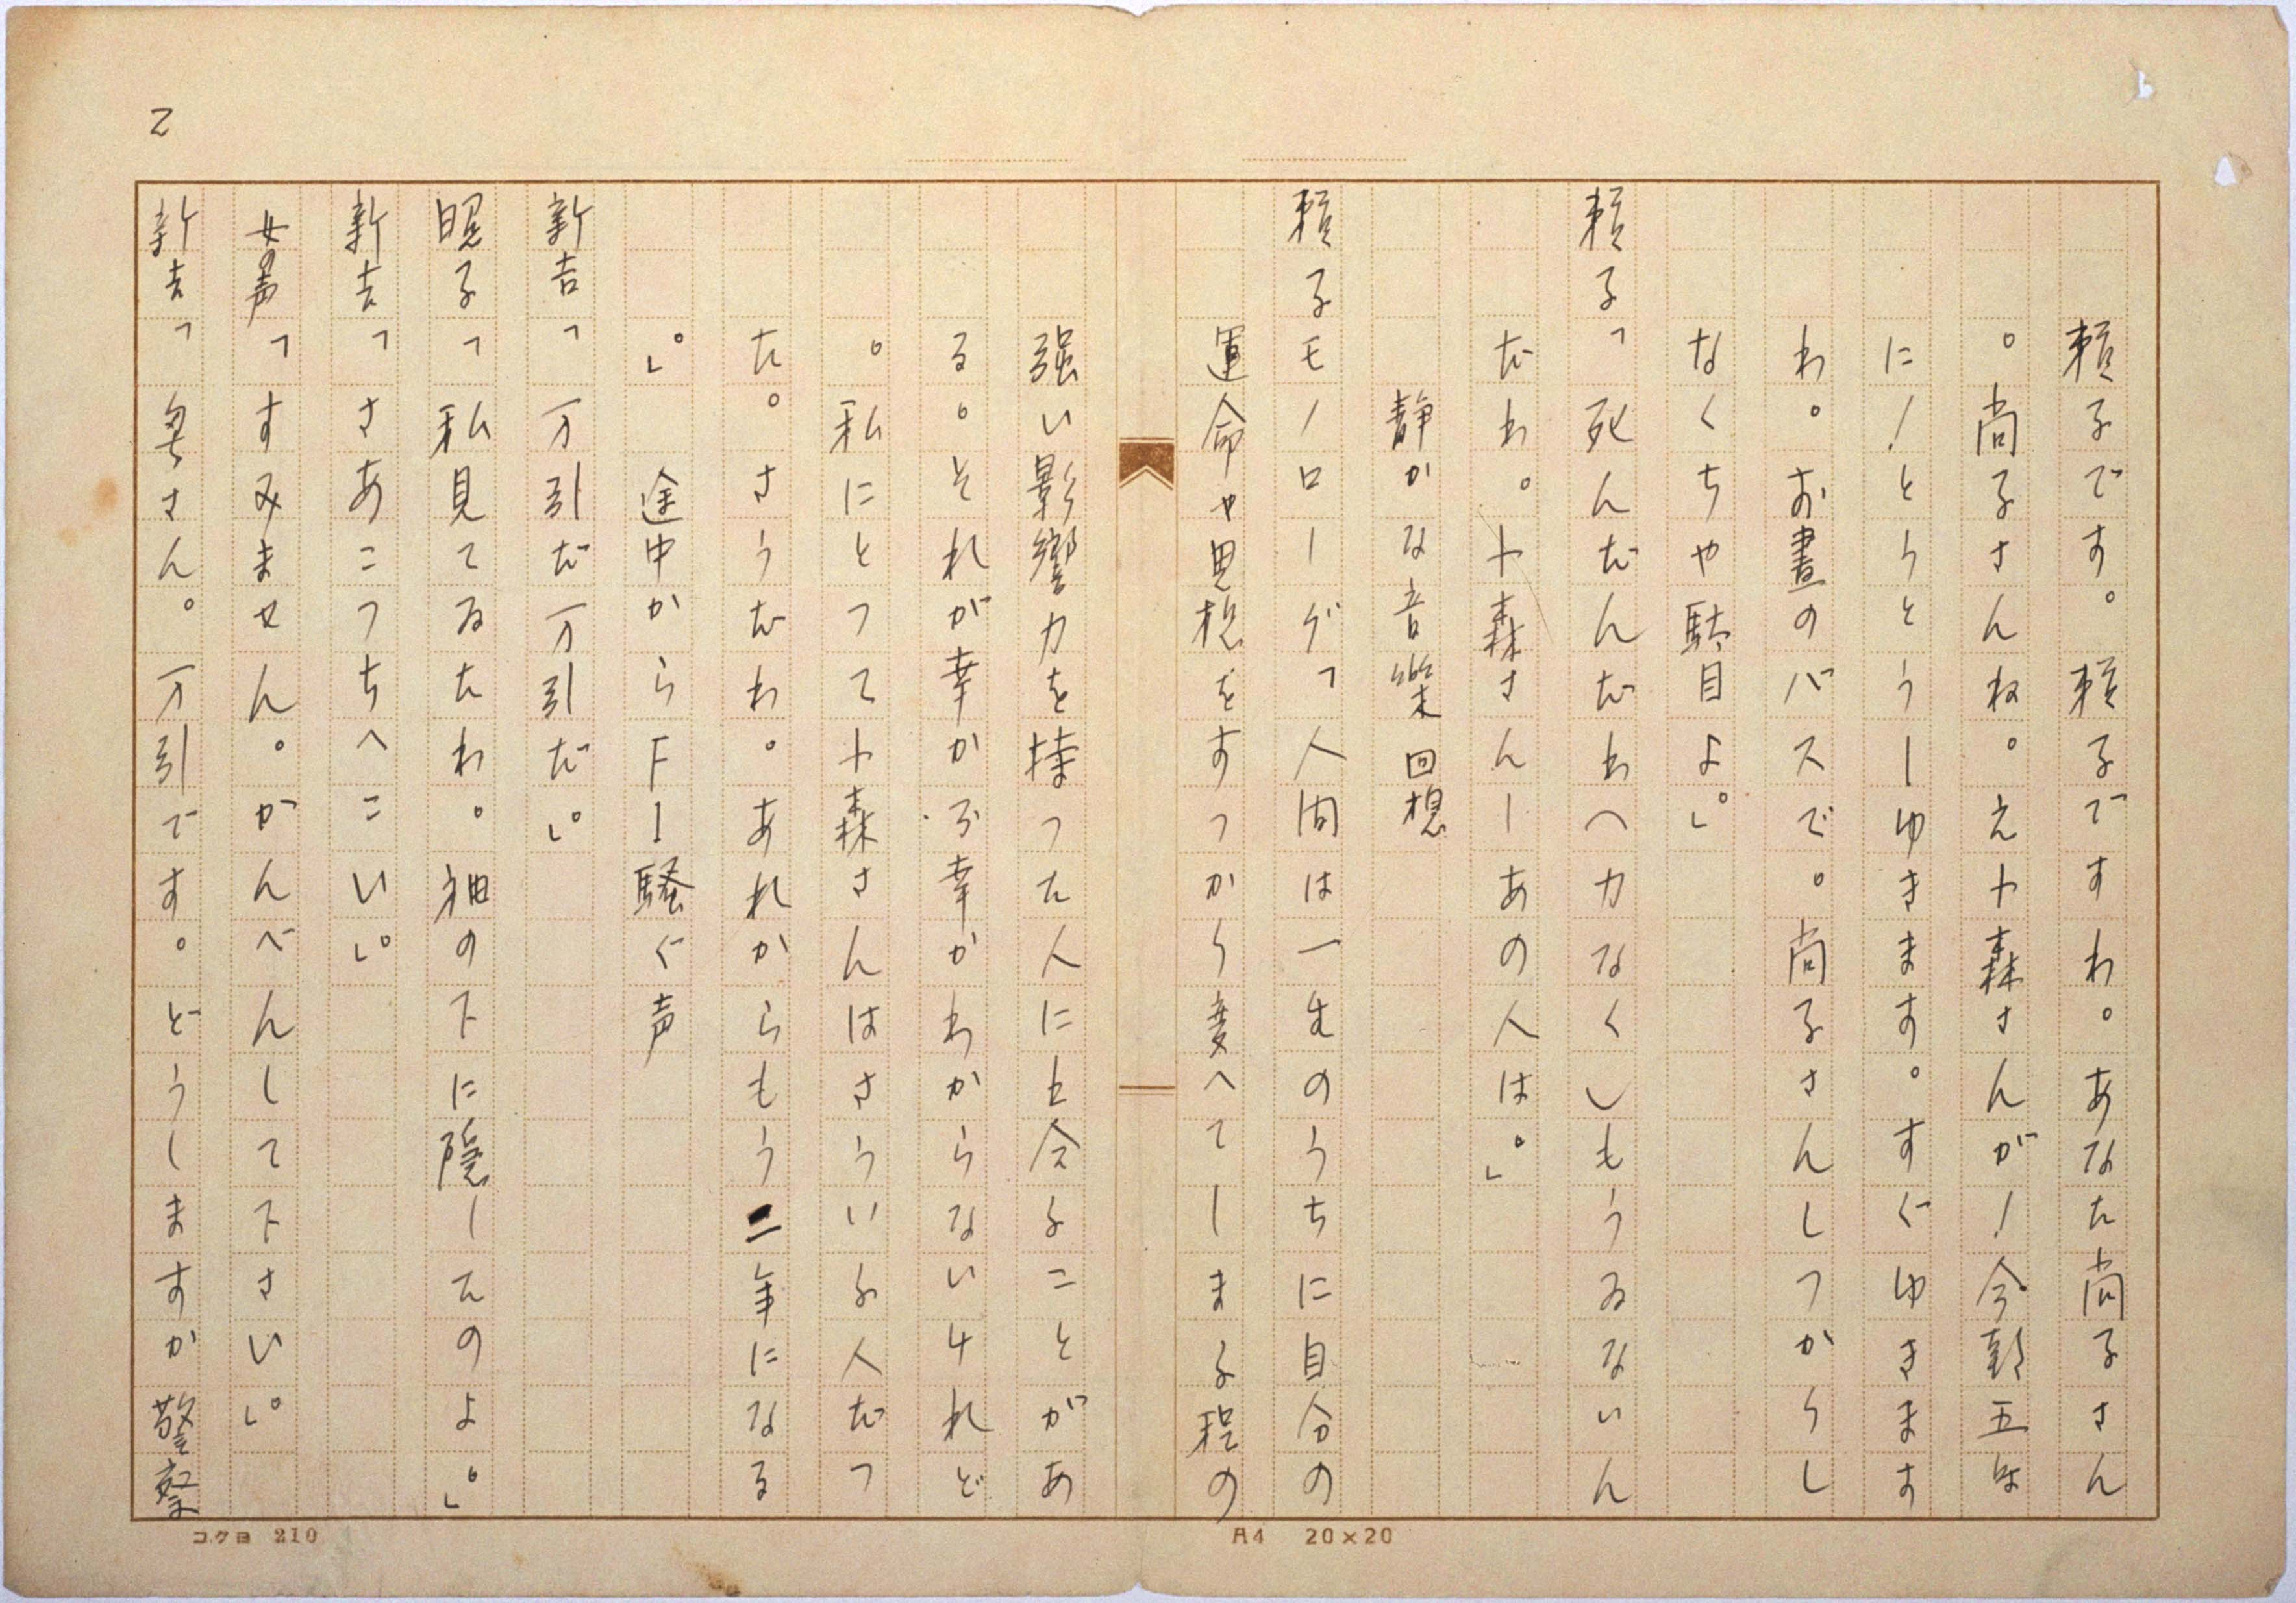 2
頼子です。頼子ですわ。あなた尚子さん
。尚子さんね。え小森さんが!今朝五時
に!とうとう!ゆきます。すぐゆきます
わ。お晝のバスで。尚子さんしつかりし
なくちや駄目よ。」
頼子「死んだんだわへ力なくしもうゐないん
だわ。小森さんーあの人は。」
静かな音樂 回想
頼子モノローグ「人間は一生のうちに自分の
運命や思想をすつかり変へてしまふ程の
強い影響力を持つた人に出会ふことがあ
る。それが幸か不幸かわからないけれど
。私にとつて小森さんはさういふ人だつ
た。さうだわ。あれからもう二年になる
。」 途中からFI騒ぐ声
新吉「万引だ万引だ。」
昭子「私見てゐたわ。袖の下に隠したのよ。」
新吉「さあこつちへこい。」
女の声「すみません。かんべんして下さい。」
新吉「奥さん。万引です。どうしますか警察
コクヨ 210
A4 20×20